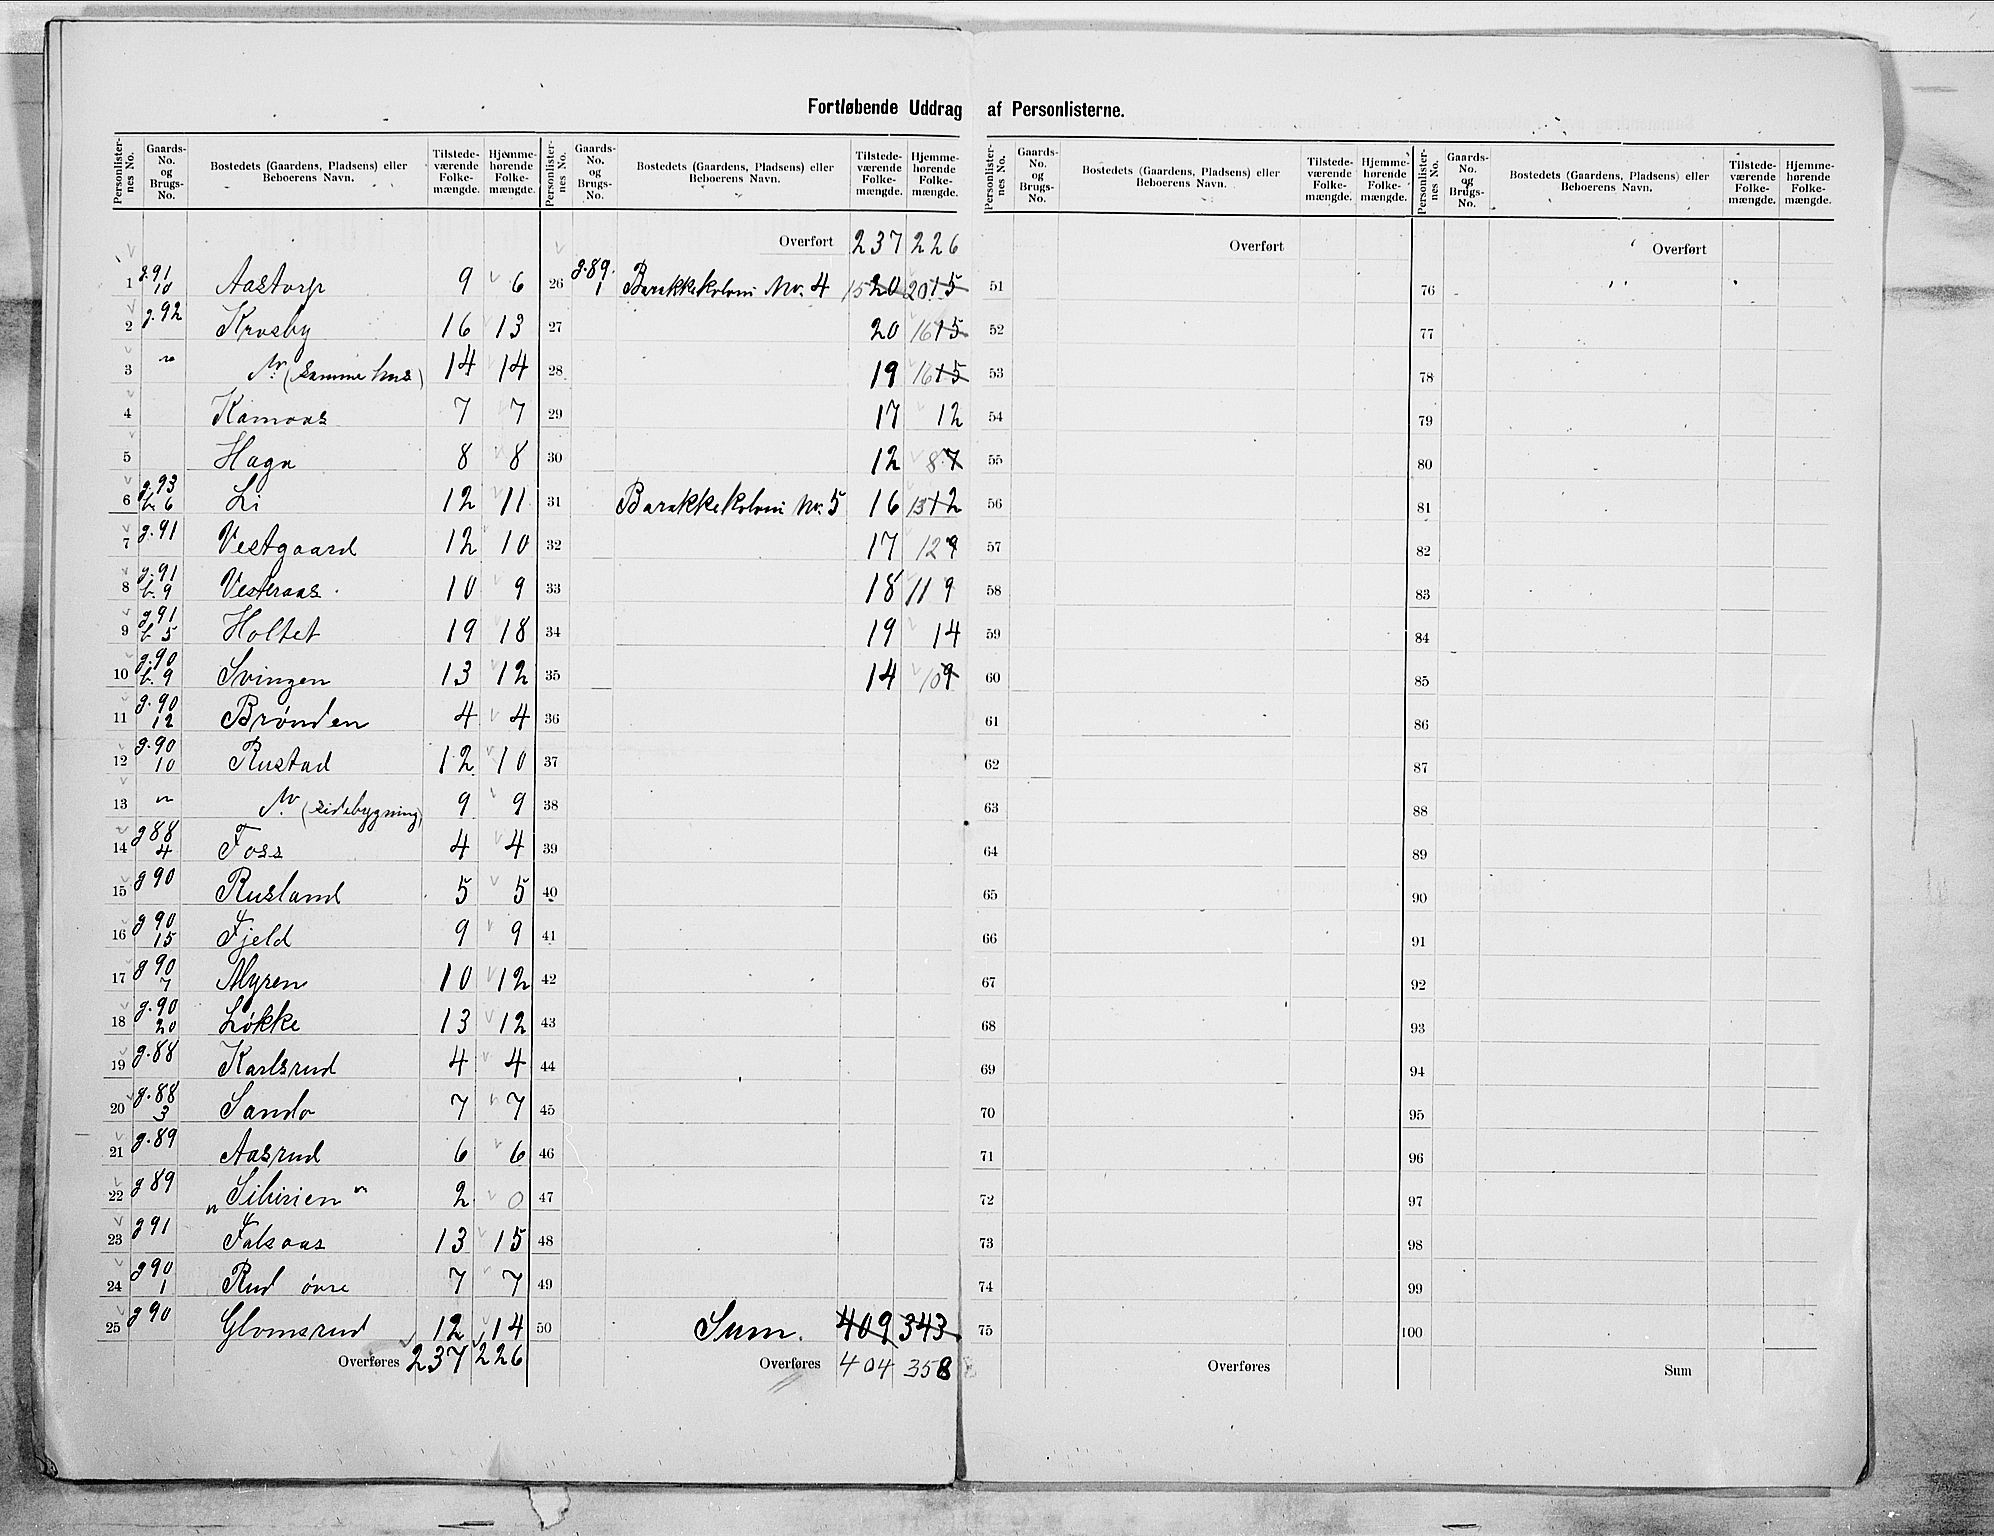 Fortløbende Uddrag af Personlisterne.
Personlister-nes No. | Gaards-No. og Brugs-No. | Bostedets (Gaardens, Pladsens) eller Beboerens Navn. | Tilstede-værende Folke-mængde. | Hjemme-hørende Folke-mængde.
1 g.91 10 Aastorp 9 6
2 g.92 Krosby 16 13
3 " (samme hus) 14 14
4 Kamaas 7 7
5 Haga 8 8
6 g.93 b.6 Li 12 11
7 g.91 Vestgaard 12 10
8 g.91 b.9 Vesteraas. 10 9
9 g.91 b.5 Holtet 19 18
10 g.90 b.9 Svingen 13 12
11 g.90 12 Brønden 4 4
12 g.90 10 Rustad 12 10
13 " (sidebygning) 9 9
14 g88 4 Foss 4 4
15 g90 Rusland 5 5
16 g90 15 Fjeld 9 9
17 g90 7 Myren 10 12
18 g.90 20 Løkke 13 12
19 g.88 Karlsrud 4 4
20 g.88 3 Sando 7 7
21 g.89 Aasrud 6 6
22 g89 "Sibirien" 2 0
23 g91 Falsaas 13 15
24 g90 1 Rud øvre 7 7
25 g90 Glomsrud 12 14
Overføres 237 226
Personlister-nes No. | Gaards-No. og Brugs-No. | Bostedets (Gaardens, Pladsens) eller Beboerens Navn. | Tilstede-værende Folke-mængde. | Hjemme-hørende Folke-mængde.
Overført 237 226
26 g.89. 1 Barakkekoloni No. 4 15 20 20 15
27 20 16 15
28 19 16 15
29 17 12
30 12 8 7
31 Barakkekoloni No. 5 16 13 12
32 17 12 9
33 18 11 9
34 19 14
35 14 10 9
36
37
38
39
40
41
42
43
44
45
46
47
48
49
50 Sum. 409 343
Overføres 404 358
Personlister-nes No. | Gaards-No. og Brugs-No. | Bostedets (Gaardens, Pladsens) eller Beboerens Navn. | Tilstede-værende Folke-mængde. | Hjemme-hørende Folke-mængde.
Overført
51
52
53
54
55
56
57
58
59
60
61
62
63
64
65
66
67
68
69
70
71
72
73
74
75
Overføres
Personlister-nes No. | Gaards-No. og Brugs-No. | Bostedets (Gaardens, Pladsens) eller Beboerens Navn. | Tilstede-værende Folke-mængde. | Hjemme-hørende Folke-mængde.
Overført
76
77
78
79
80
81
82
83
84
85
86
87
88
89
90
91
92
93
94
95
96
97
98
99
100
Sum